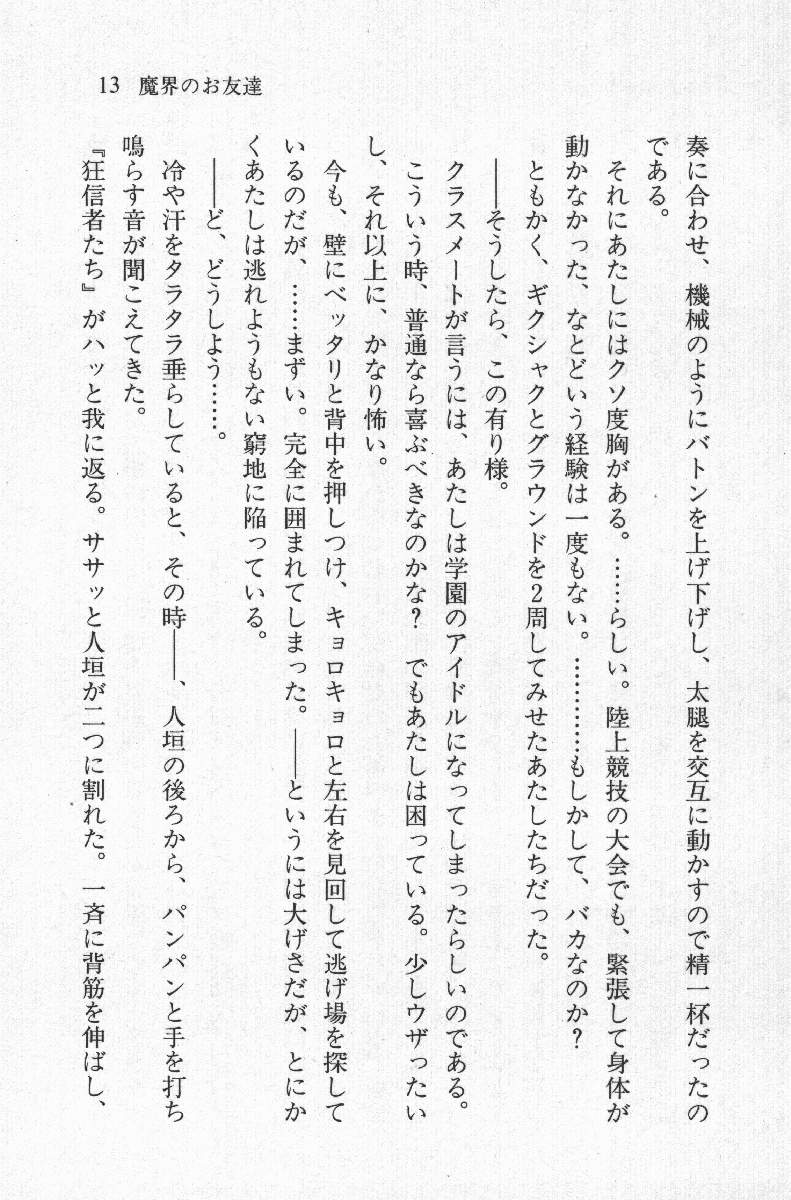 13 魔界のお友達
奏に合わせ、機械のようにバトンを上げ下げし、太腿を交互に動かすので精一杯だったの
である。
それにあたしにはクソ度胸がある。……らしい。陸上競技の大会でも、緊張して身体が
動かなかった、なとどいう経験は一度もない。…………もしかして、バカなのか?
ともかく、ギクシャクとグラウンドを2周してみせたあたしたちだった。
――そうしたら、この有り様。
クラスメートが言うには、あたしは学園のアイドルになってしまったらしいのである。
こういう時、普通なら喜ぶべきなのかな? でもあたしは困っている。少しウザったい
し、それ以上に、かなり怖い。
今も、壁にベッタリと背中を押しつけ、キョロキョロと左右を見回して逃げ場を探して
いるのだが、……まずい。完全に囲まれてしまった。――というには大げさだが、とにか
くあたしは逃れようもない窮地に陥っている。
――ど、どうしよう……。
冷や汗をタラタラ垂らしていると、その時――、人垣の後ろから、パンパンと手を打ち
鳴らす音が聞こえてきた。
『狂信者たち』がハッと我に返る。ササッと人垣が二つに割れた。一斉に背筋を伸ばし、